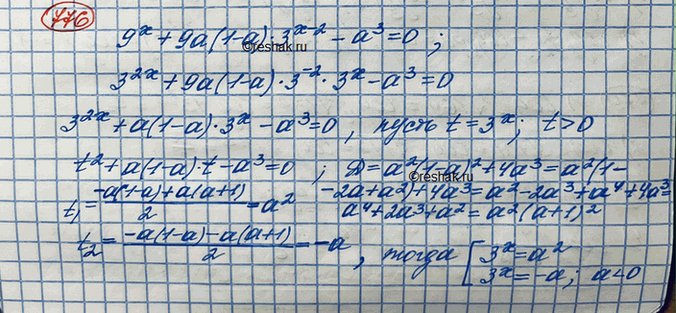 776
9^x + 9a(1-a)·3^{x-2} - a^3 = 0 ;
©reshak.ru
3^{2x} + 9a(1-a)·3^{-2}·3^x - a^3 = 0
3^{2x} + a(1-a)·3^x - a^3 = 0 , пусть t = 3^x ; t > 0
t^2 + a(1-a)·t - a^3 = 0 ; D = a^2(1-a)^2 + 4a^3 = a^2(1-
©reshak.ru
-2a + a^2) + 4a^3 = a^2 - 2a^3 + a^4 + 4a^3 =
t_1 = \frac{-a(1-a) + a(a+1)}{2} = a^2
a^4 + 2a^3 + a^2 = a^2(a+1)^2
t_2 = \frac{-a(1-a) - a(a+1)}{2} = -a , тогда [ 3^x = a^2
3^x = -a ; a < 0